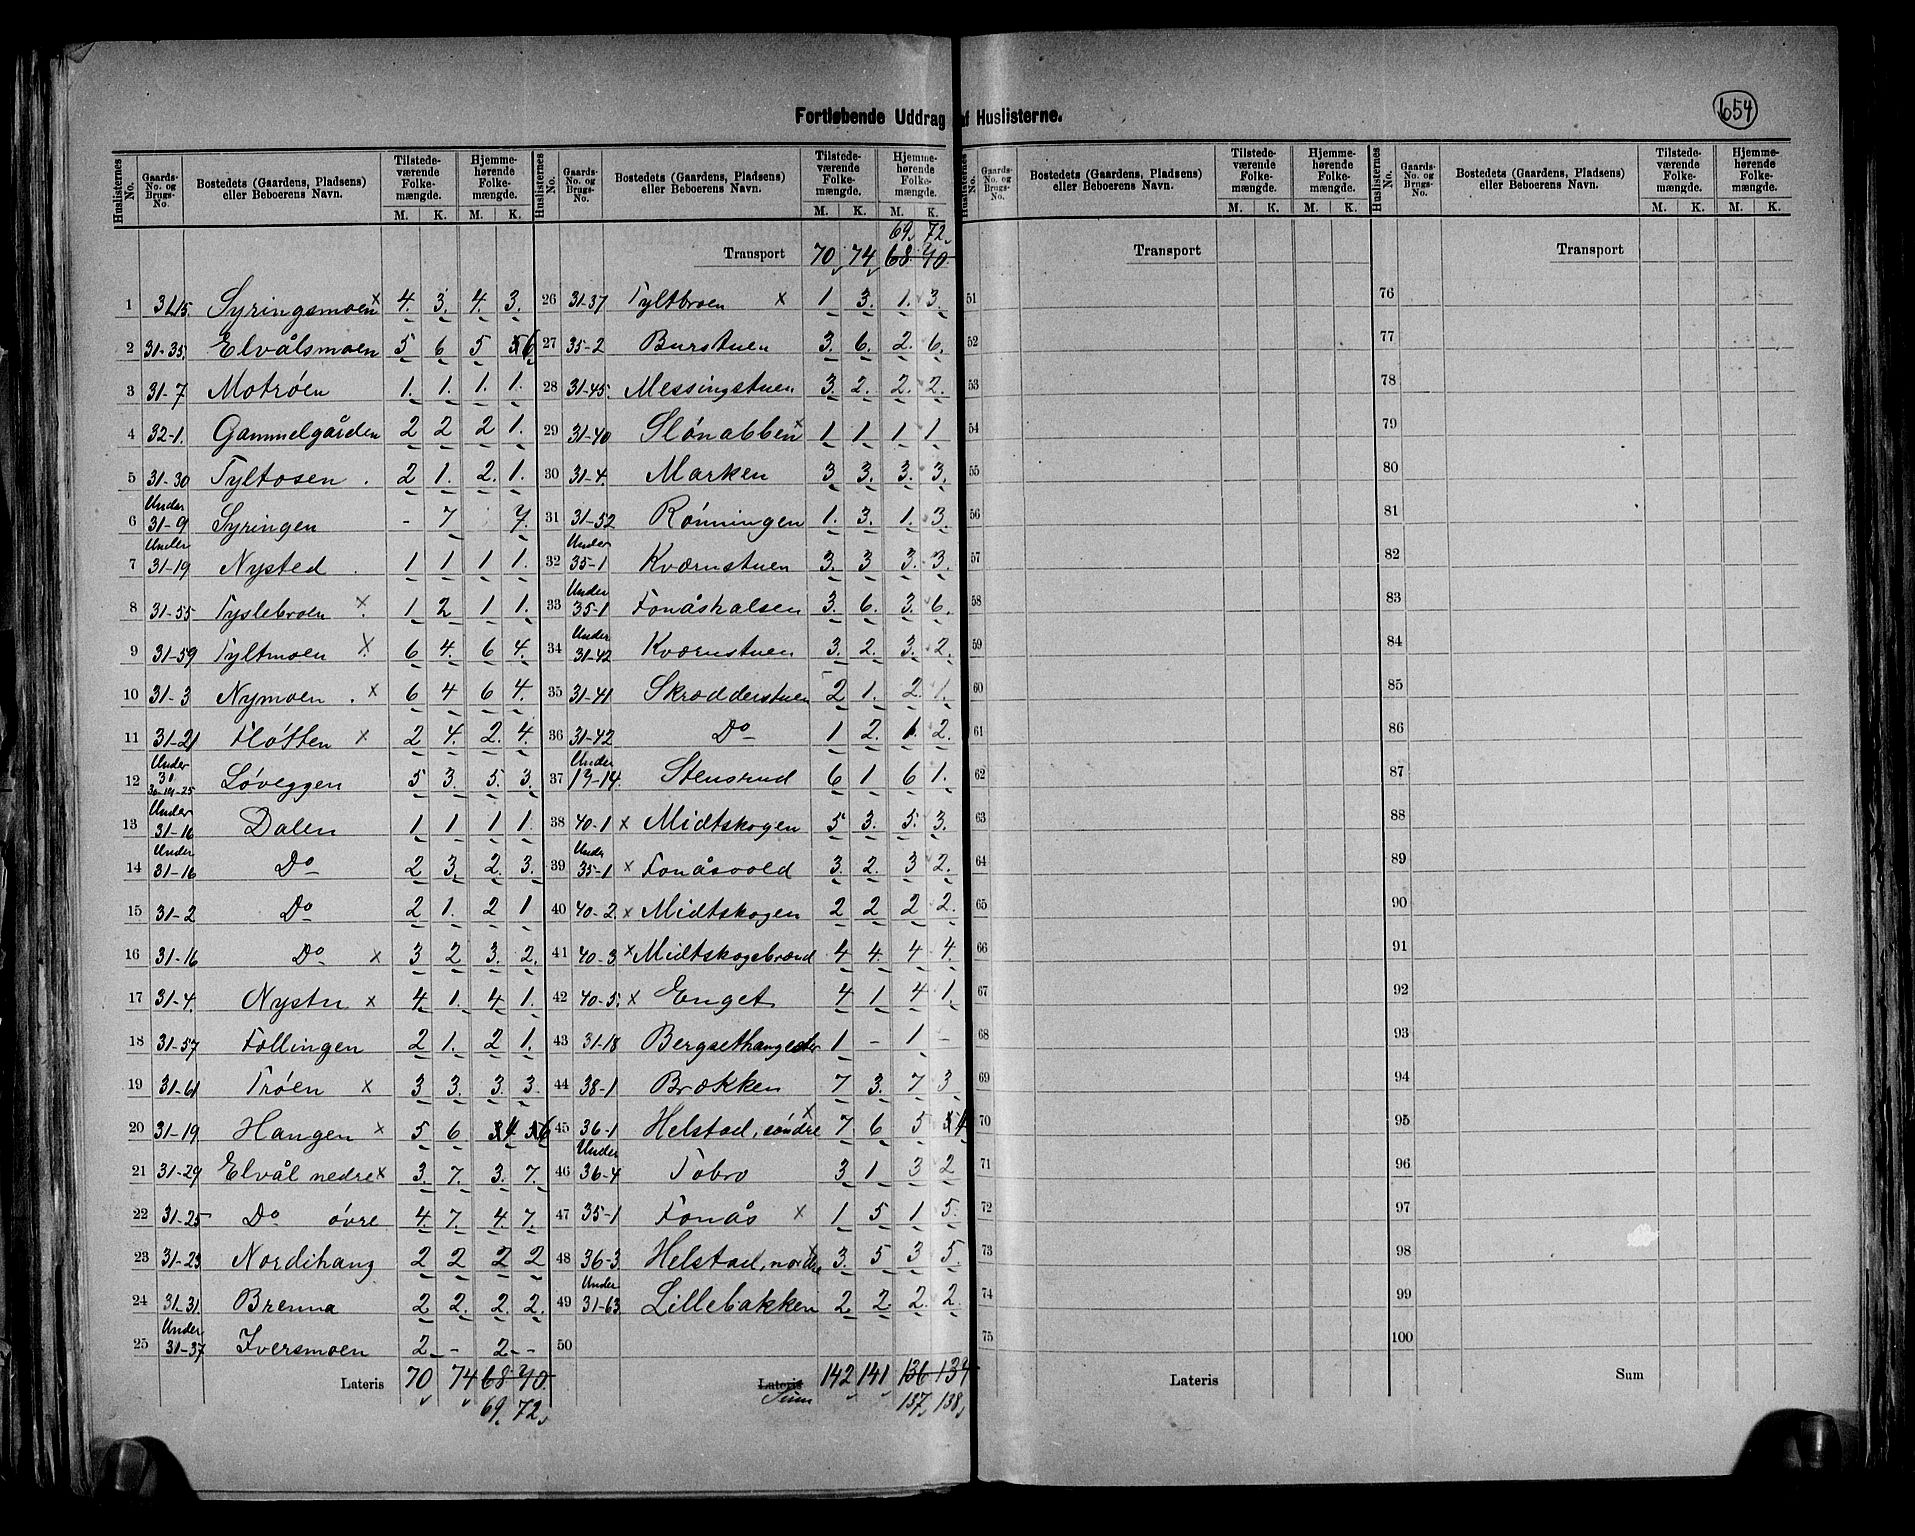 654
Fortløbende Uddrag af Huslisterne.
Huslisternes No. | Gaards-No. og Brugs-No. | Bostedets (Gaardens, Pladsens) eller Beboerens Navn. | Tilstedeværende Folkemængde. M. K. | Hjemmehørende Folkemængde. M. K.
1 31.15. Syringsmoen x 4. 3. 4. 3.
2 31-35. Elvålsmoen 5 6 5 6
3 31-7 Motrøen 1. 1. 1. 1.
4 32-1. Gammelgården 2 2 2 1.
5 31-30 Tyltosen . 2 1. 2. 1.
6 Under 31-9 Syringen - 7 7.
7 Under 31-19 Nysted . 1 1 1 1.
8 31-55 Tyslebroen x 1 2 1 1.
9 31-59 Tyltmoen x 6 4. 6 4.
10 31-3 Nymoen . x 6 4 6 4.
11 31-21 Fløtten x 2 4. 2. 4.
12 Under 31 30-19-25 Løveggen 5 3 5. 3.
13 Under 31-16 Dalen 1 1 1 1.
14 Under 31-16 Do 2 3. 2. 3.
15 31-2 Do 2 1. 2 1
16 31-16 Do x 3 2 3. 2.
17 31-4. Nystu x 4 1. 4 1.
18 31-57 Follingen 2 1. 2 1.
19 31-61 Trøen x 3 3. 3. 3.
20 31-19. Haugen x 5 6 4 6
21 31-29 Elvål nedre x 3. 7. 3. 7.
22 31-25 Do øvre 4. 7. 4. 7.
23 31-23 Nordihaug 2 2 2 2
24 31.31. Brenna 2 2. 2. 2.
25 Under 31-37 Iversmoen 2 - 2 -
Lateris 70 74 68 70.
69. 72.
69. 72.
Transport 70 74 68 70
26 31-37 Tyltbroen x 1 3. 1. 3.
27 35-2 Burstuen 3. 6. 2. 6.
28 31-45. Messingstuen 3. 2. 2. 2.
29 31-40 Slønabben x 1 1 1 1
30 31-4. Marken 3 3. 3. 3.
31 31-52 Rønningen 1. 3. 1. 3.
32 Under 35-1 Kværnstuen 3. 3 3. 3.
33 Under 35-1 Fonåshalsen 3. 6. 3. 6.
34 Under 31-42 Kværnstuen 3. 2. 3. 2.
35 31-41 Skrædderstuen 2 1. 2. 1.
36 31-42 Do 1 2. 1. 2.
37 Under 13-14. Stensrud 6 1 6 1.
38 40-1 x Midtskogen 5 3. 5. 3.
39 Under 35-1 x Fonåsvold 3. 2. 3 2.
40 40-2. x Midtskogen 2 2 2 2.
41 40-3. x Midtskogsbrænd 4 4. 4 4.
42 40-5. x Enget 4 1 4 1.
43 31-18 Bergsethaugeseter 1 - 1 -
44 38-1 Brækken 7 3. 7 3
45 36-1 Helstad, søndre x 7 6 5 4
46 Under 36-4 Tobro 3 1 3 2
47 35-1 Fonås x 1 5 1 5.
48 36-3 Helstad, nordre x 3. 5 3 5.
49 Under 31-63. Lillebakken 2. 2 2. 2.
50
Lateris Sum 142 141 136 134
137. 138.
Huslisternes No. | Gaards-No. og Brugs-No. | Bostedets (Gaardens, Pladsens) eller Beboerens Navn. | Tilstedeværende Folkemængde. M. K. | Hjemmehørende Folkemængde. M. K.
Transport
51
52
53
54
55
56
57
58
59
60
61
62
63
64
65
66
67
68
69
70
71
72
73
74
75
Lateris
Huslisternes No. | Gaards-No. og Brugs-No. | Bostedets (Gaardens, Pladsens) eller Beboerens Navn. | Tilstedeværende Folkemængde. M. K. | Hjemmehørende Folkemængde. M. K.
Transport
76
77
78
79
80
81
82
83
84
85
86
87
88
89
90
91
92
93
94
95
96
97
98
99
100
Sum